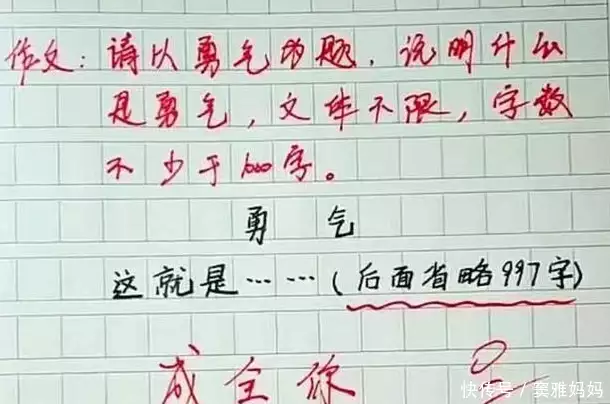 作文：请以勇气为题，说明什么
是勇气，文体不限，字数
不少于1000字。
勇 气
这就是……(后面省略997字)
成全你
快传号／窦雅妈妈